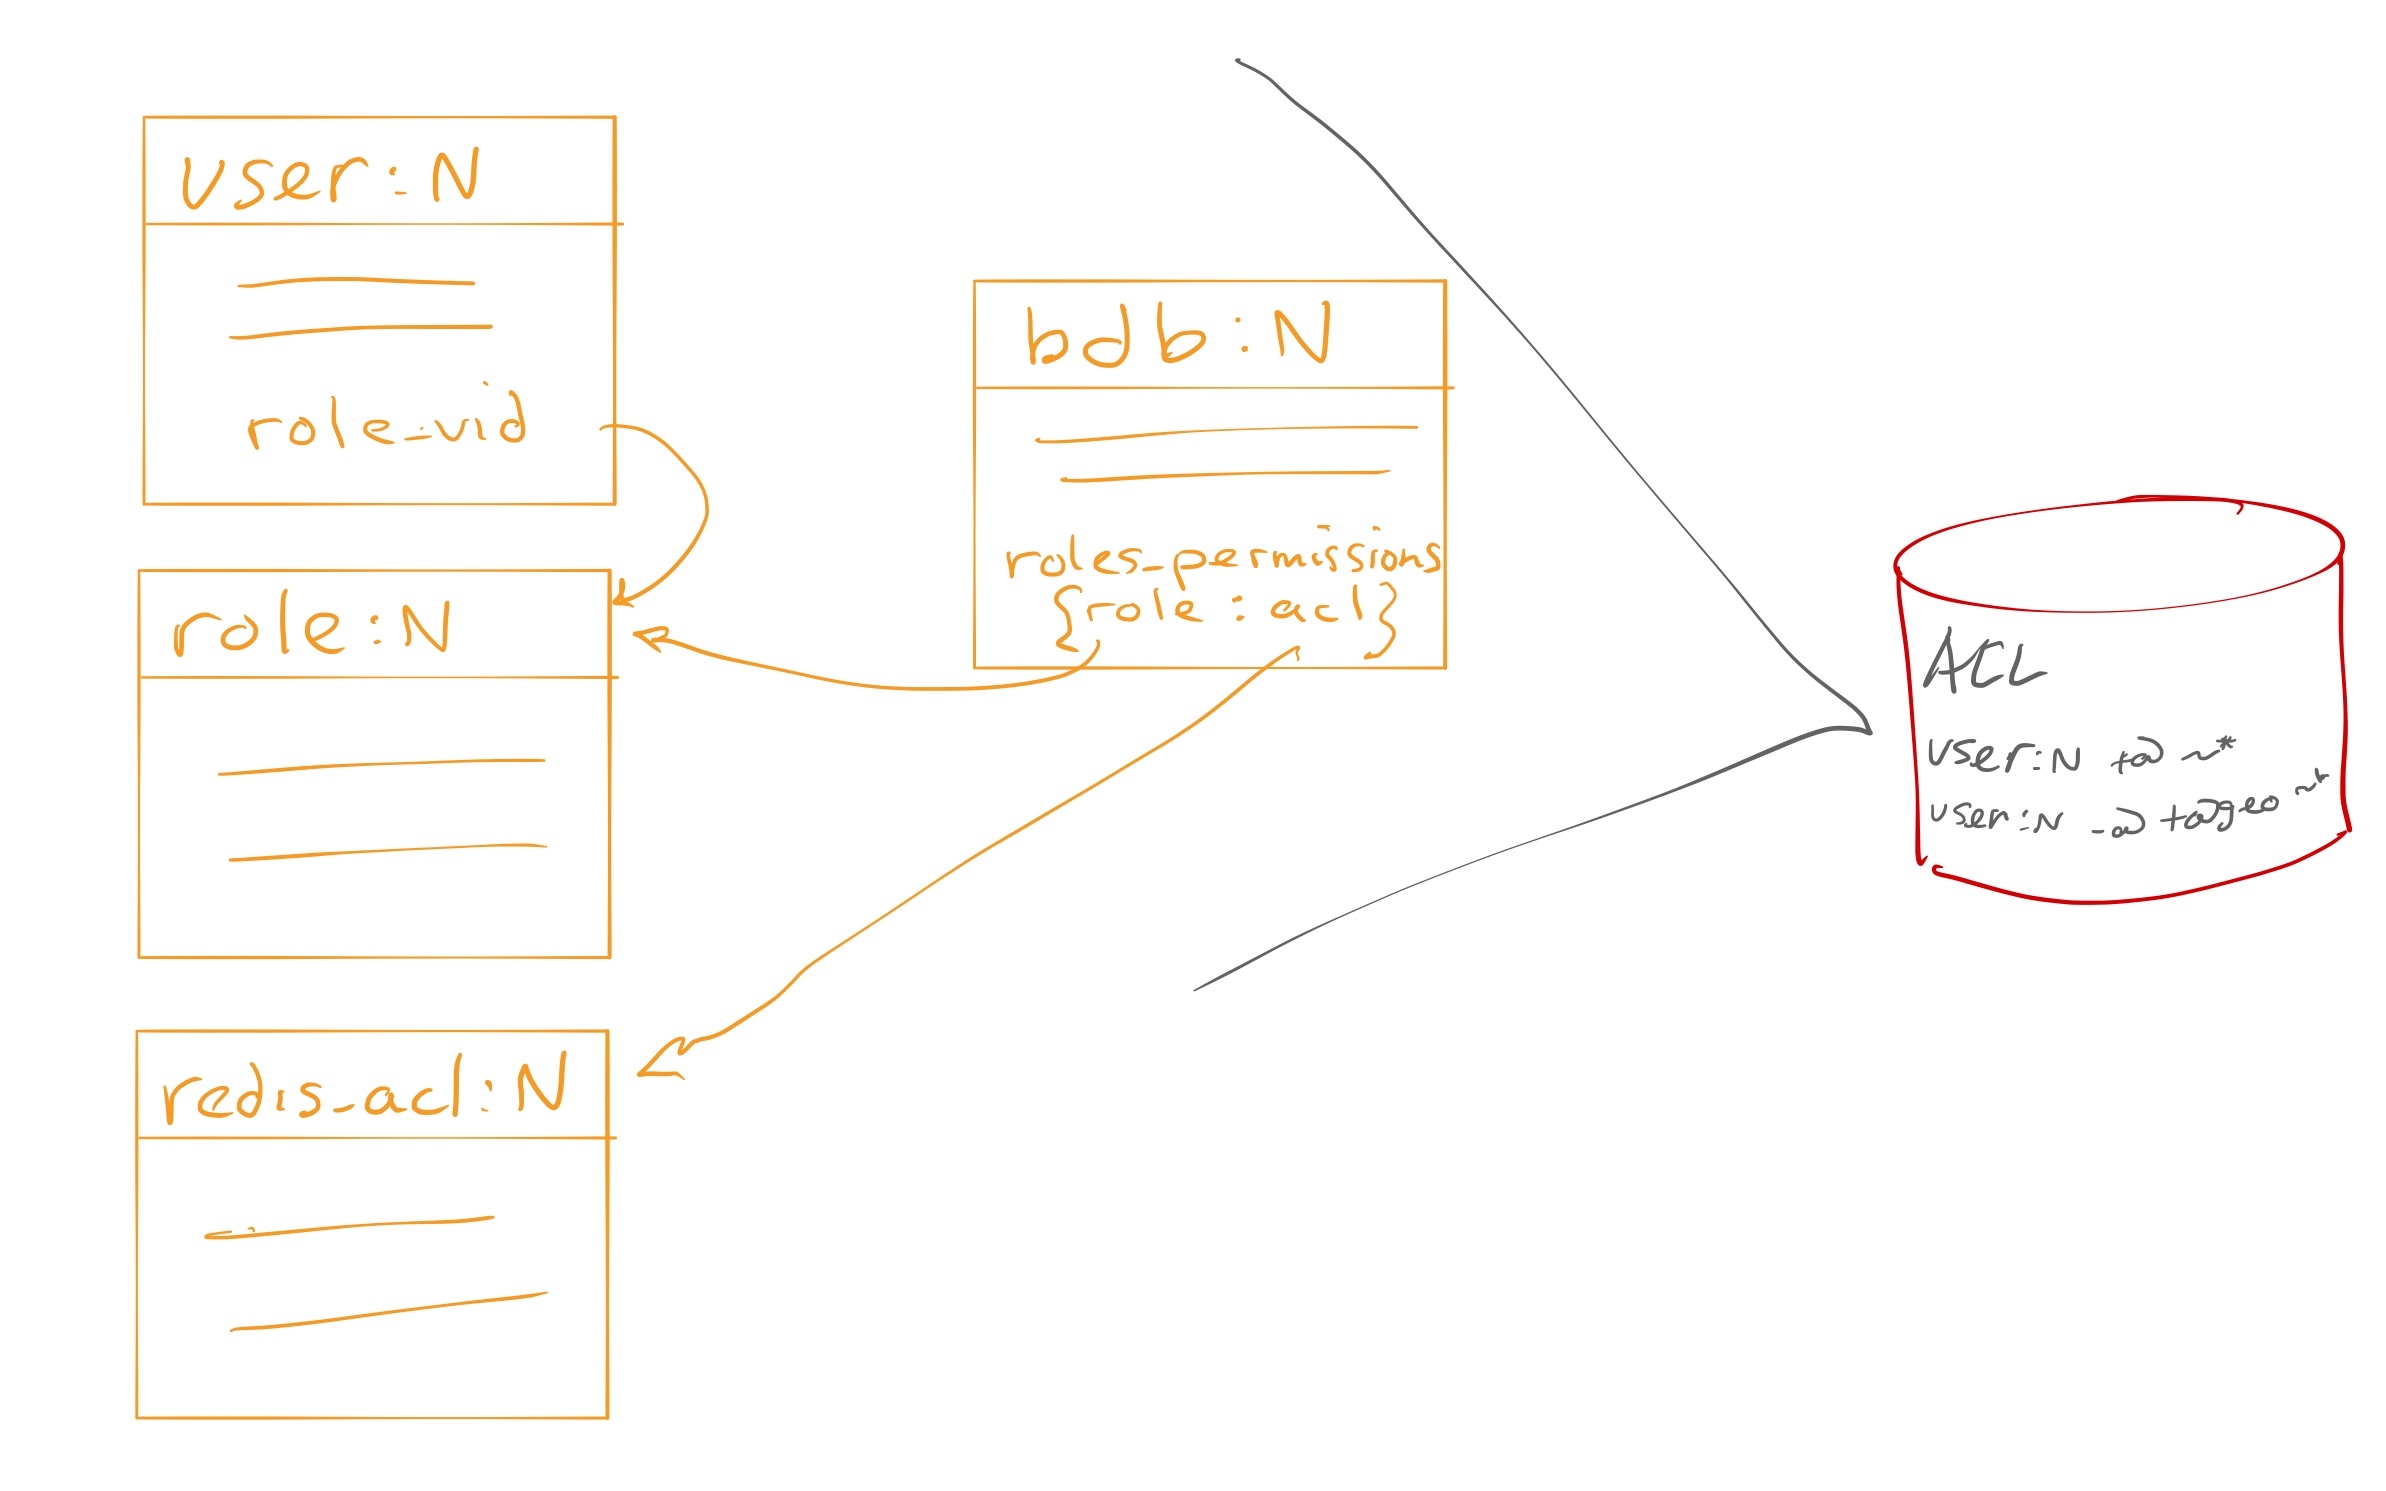 user:N
role_uid
role:N
redis_acl:N
bdb:N
roles_permissions
{role:acl}
ACL
user:N +@ ~*
user:N -@ +@geo ~*